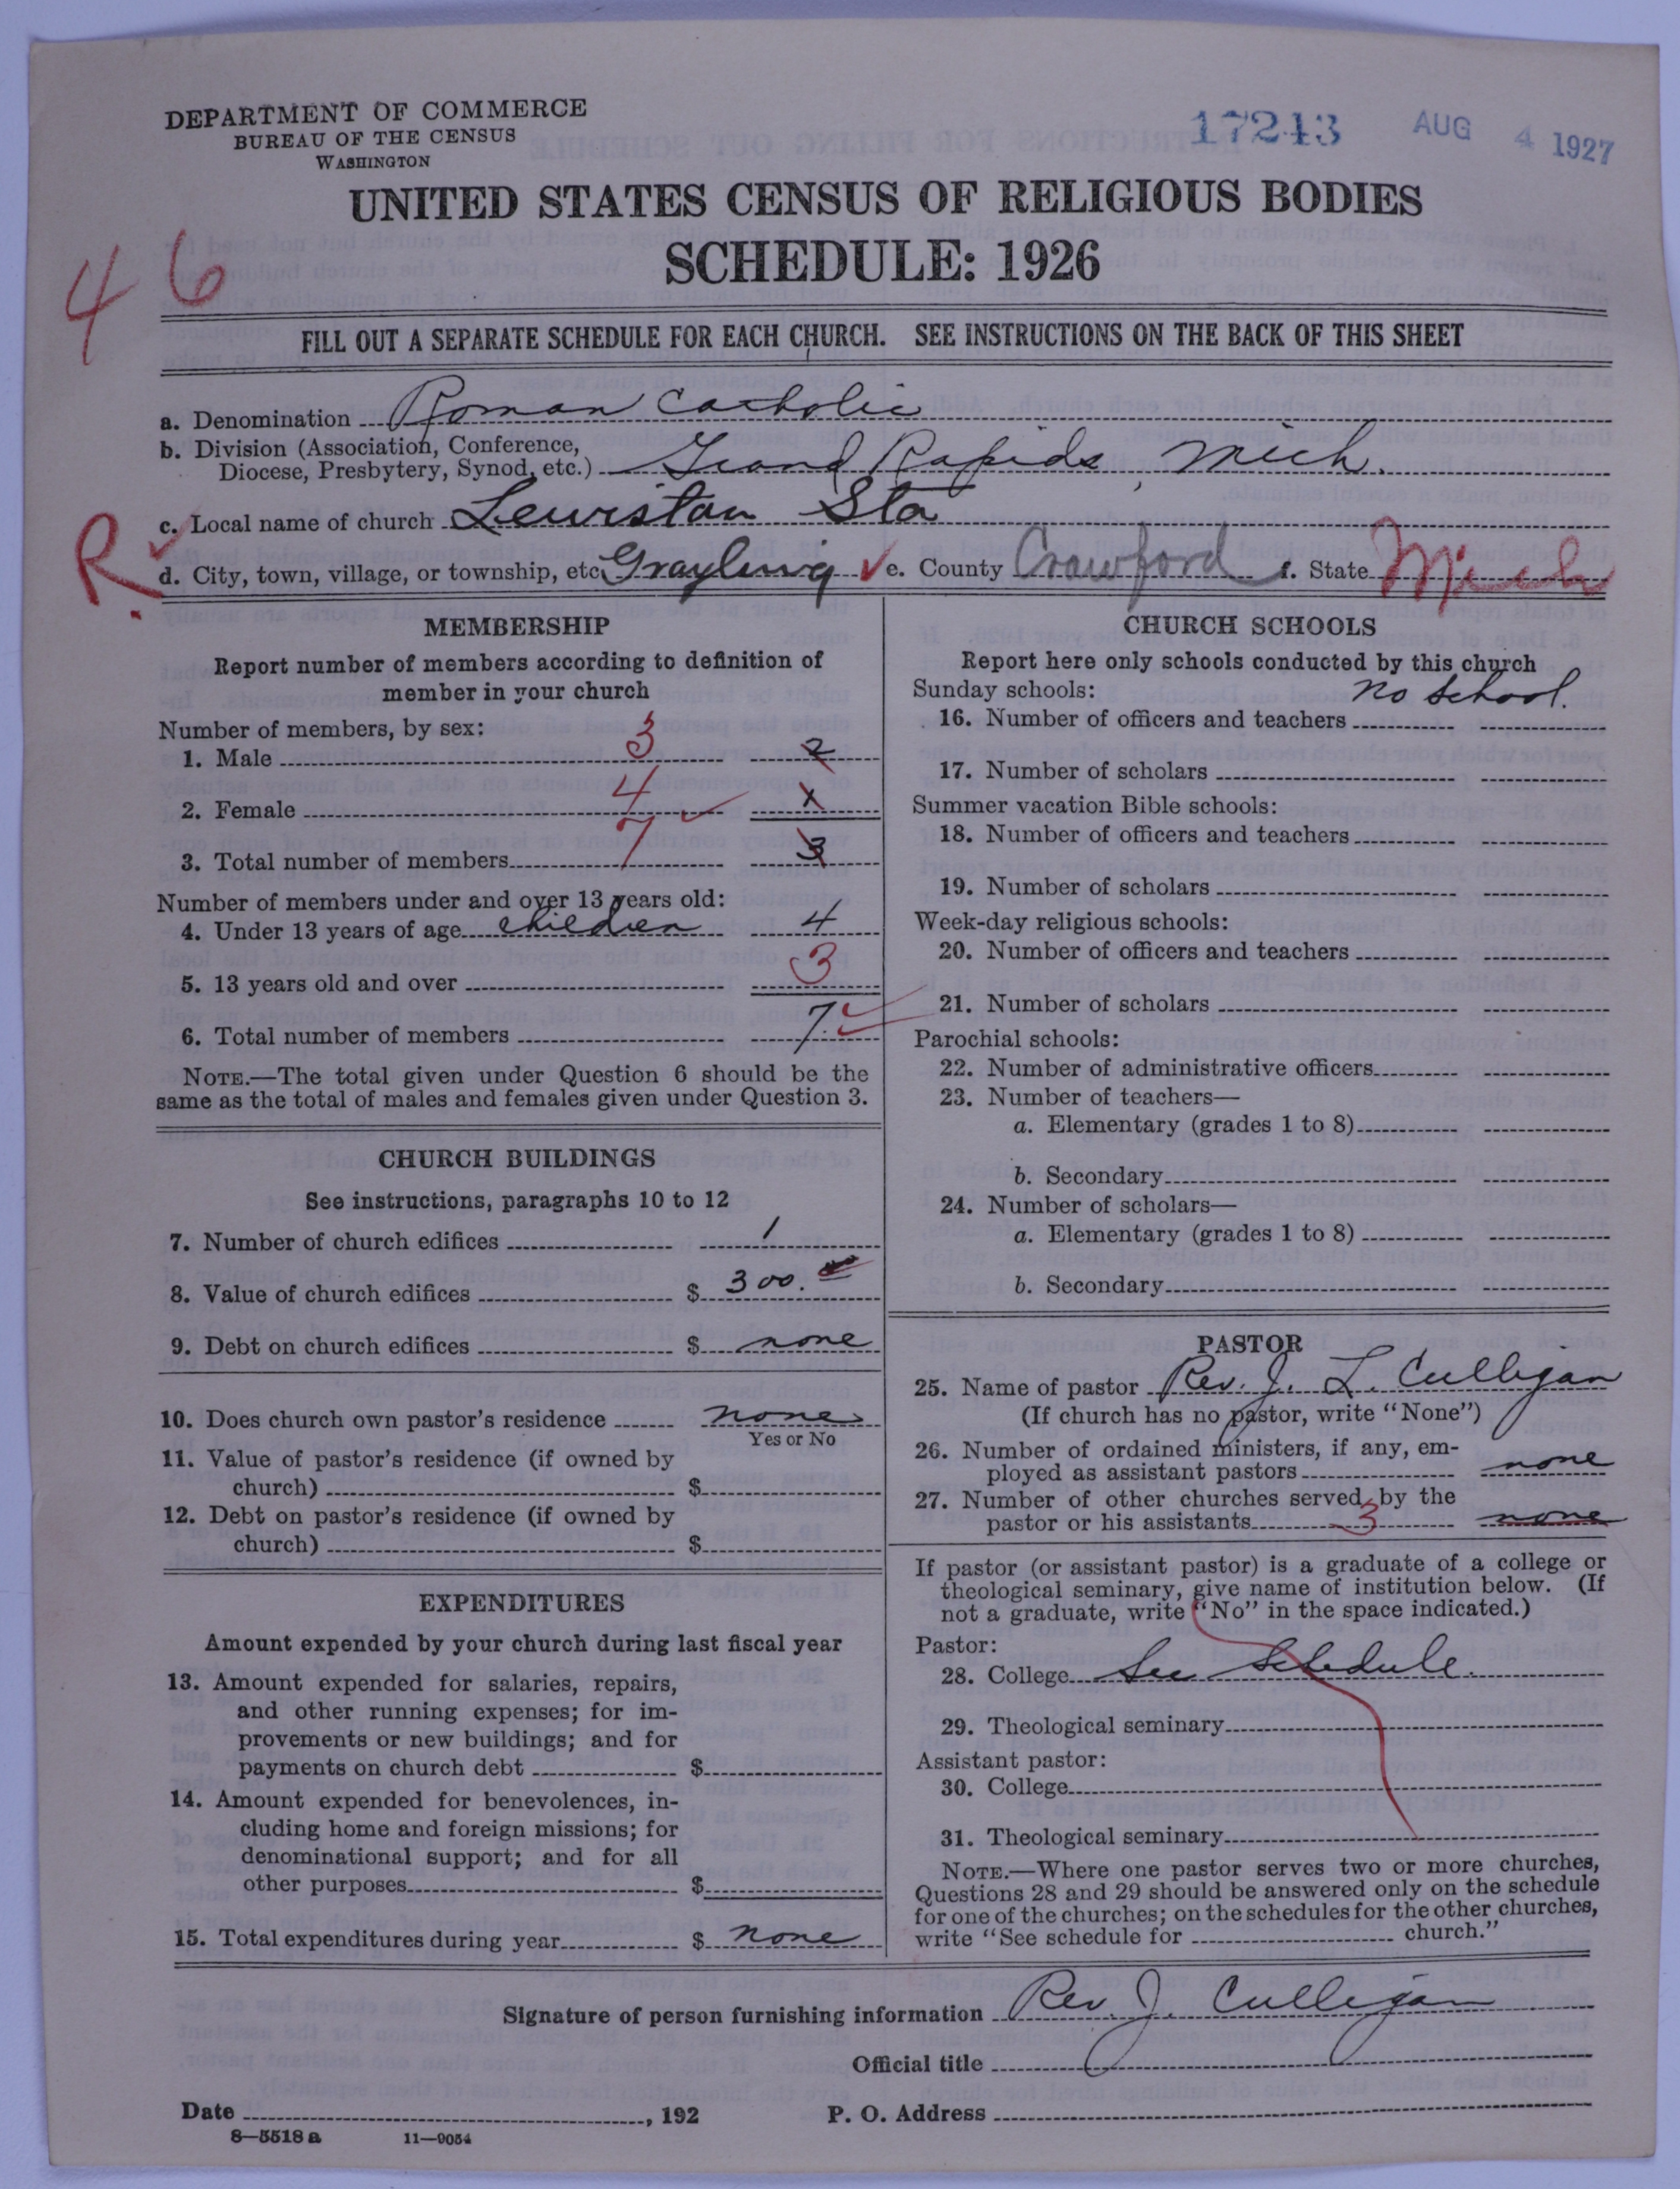 DEPARTMENT OF COMMERCE
BUREAU OF THE CENSUS
WASHINGTON
17243 AUG 4 1927
UNITED STATES CENSUS OF RELIGIOUS BODIES
SCHEDULE: 1926
46
FILL OUT A SEPARATE SCHEDULE FOR EACH CHURCH. SEE INSTRUCTIONS ON THE BACK OF THIS SHEET
a. Denomination Roman Catholic
b. Division (Association, Conference,
Diocese, Presbytery, Synod, etc.) Grand Rapids, Mich.
c. Local name of church Lewiston Sta
R.
d. City, town, village, or township, etc. Grayling e. County Crawford f. State Mich
MEMBERSHIP
Report number of members according to definition of
member in your church
Number of members, by sex:
1. Male 3 2
2. Female 4 1
3. Total number of members 7 3
Number of members under and over 13 years old:
4. Under 13 years of age children 4
5. 13 years old and over 3
6. Total number of members 7.
NOTE.—The total given under Question 6 should be the
same as the total of males and females given under Question 3.
CHURCH BUILDINGS
See instructions, paragraphs 10 to 12
7. Number of church edifices 1
8. Value of church edifices $ 300.
9. Debt on church edifices $ none
10. Does church own pastor's residence none
Yes or No
11. Value of pastor's residence (if owned by
church) $
12. Debt on pastor's residence (if owned by
church) $
EXPENDITURES
Amount expended by your church during last fiscal year
13. Amount expended for salaries, repairs,
and other running expenses; for im-
provements or new buildings; and for
payments on church debt $
14. Amount expended for benevolences, in-
cluding home and foreign missions; for
denominational support; and for all
other purposes $
15. Total expenditures during year $ none
CHURCH SCHOOLS
Report here only schools conducted by this church
Sunday schools: no school.
16. Number of officers and teachers
17. Number of scholars
Summer vacation Bible schools:
18. Number of officers and teachers
19. Number of scholars
Week-day religious schools:
20. Number of officers and teachers
21. Number of scholars
Parochial schools:
22. Number of administrative officers
23. Number of teachers—
a. Elementary (grades 1 to 8)
b. Secondary
24. Number of scholars—
a. Elementary (grades 1 to 8)
b. Secondary
PASTOR
25. Name of pastor Rev. J. L. Culligan
(If church has no pastor, write "None")
26. Number of ordained ministers, if any, em-
ployed as assistant pastors none
27. Number of other churches served by the
pastor or his assistants 3 none
If pastor (or assistant pastor) is a graduate of a college or
theological seminary, give name of institution below. (If
not a graduate, write "No" in the space indicated.)
Pastor:
28. College See Schedule.
29. Theological seminary
Assistant pastor:
30. College
31. Theological seminary
NOTE.—Where one pastor serves two or more churches,
Questions 28 and 29 should be answered only on the schedule
for one of the churches; on the schedules for the other churches,
write "See schedule for church."
Signature of person furnishing information Rev. J. Culligan
Official title
Date , 192 P. O. Address
8—5518 a 11—9054